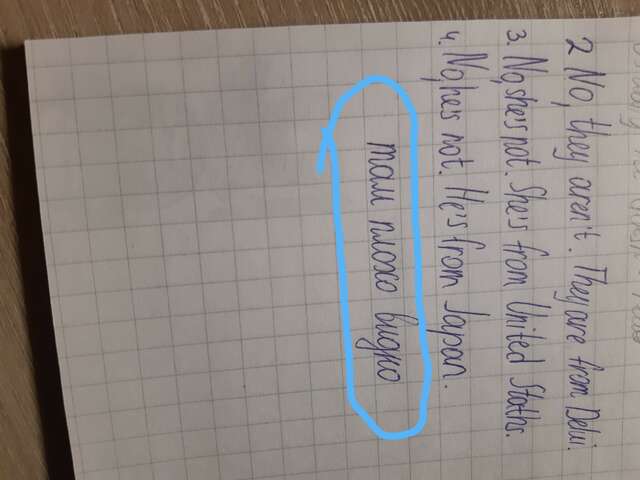 2 No, they aren't. They are from Delwi.
3. No, she's not. She's from United Staths.
4. No, he's not. He's from Japan.
там плохо видно